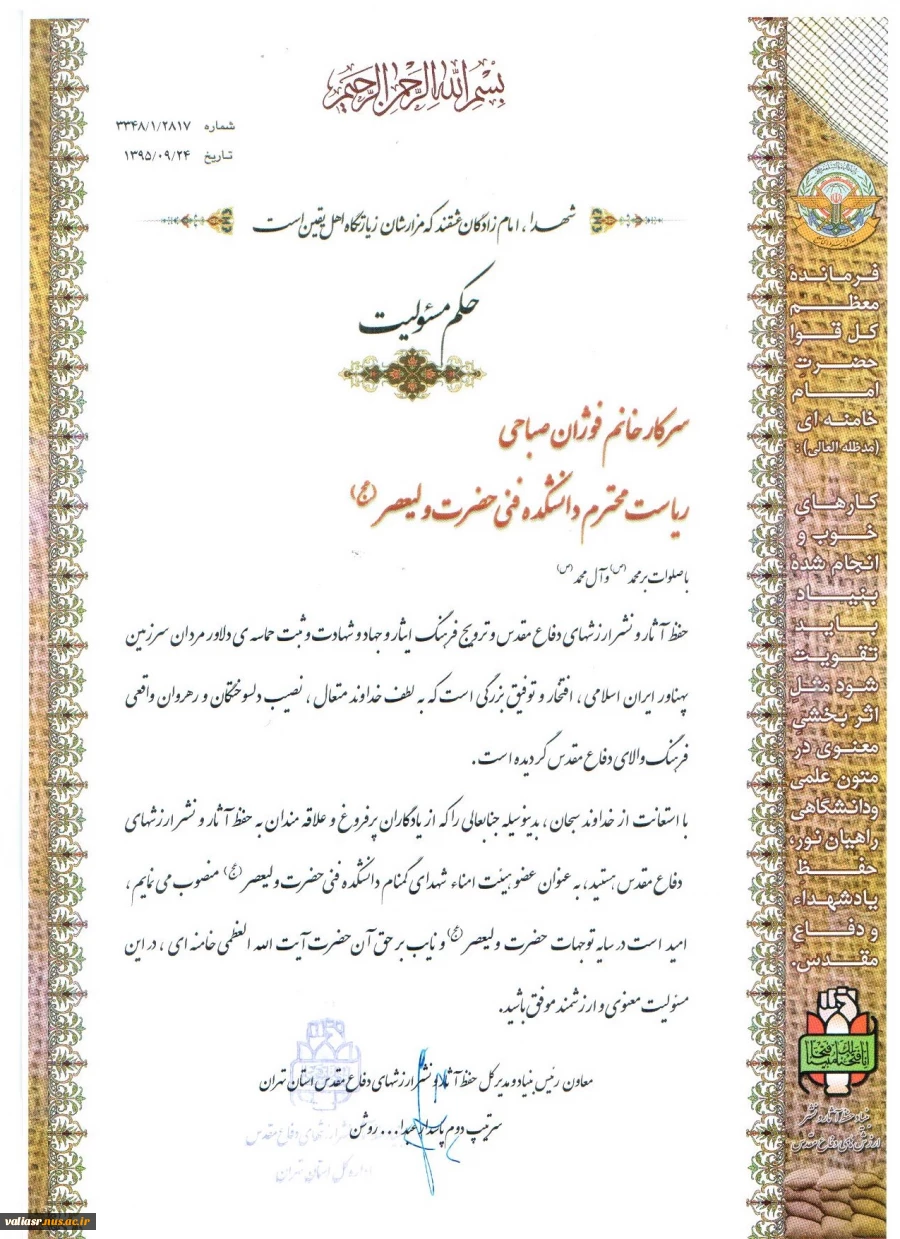 بسم الله الرحمن الرحیم
شماره ۳۳۴۸/۱/۲۸۱۷
تاریخ ۱۳۹۵/۰۹/۲۴
شهدا، امام زادگان عشقند که مزارشان زیارتگاه اهل یقین است
حکم مسئولیت
سرکار خانم فوژان صباحی
ریاست محترم دانشکده فنی حضرت ولیعصر (عج)
با صلوات بر محمد (ص) و آل محمد (ص)
حفظ آثار و نشر ارزشهای دفاع مقدس و ترویج فرهنگ ایثار و جهاد و شهادت و ثبت حماسه ی دلاور مردان سرزمین
پهناور ایران اسلامی ، افتخار و توفیق بزرگی است که به لطف خداوند متعال ، نصیب دلسوختگان و رهروان واقعی
فرهنگ والای دفاع مقدس گردیده است .
با استعانت از خداوند سبحان ، بدینوسیله جنابعالی را که از یادگاران پرفروغ و علاقه مندان به حفظ آثار و نشر ارزشهای
دفاع مقدس هستید ، به عنوان عضو هیئت امناء شهدای گمنام دانشکده فنی حضرت ولیعصر (عج) منصوب می نمایم ،
امید است در سایه توجهات حضرت ولیعصر (عج) و نایب بر حق آن حضرت آیت الله العظمی خامنه ای ، در این
مسئولیت معنوی و ارزشمند موفق باشید .
معاون رئیس بنیاد و مدیرکل حفظ آثار و نشر ارزشهای دفاع مقدس استان تهران
سرتیپ دوم پاسدار عبدا... روشن
اداره کل استان تهران
فرماندهٔ
معظم
کل قوا
حضرت
امام
خامنه ای
(مدظله العالی) :
کارهای
خوب و
انجام شده
بنیاد
باید
تقویت
شود مثل
اثر بخشی
معنوی در
متون علمی
ودانشگاهی
راهیان نور،
حفظ
یادشهداء
و دفاع
مقدس.
انا فتحنا لک فتحا مبینا
بنیاد حفظ آثار و نشر
ارزش های دفاع مقدس
valiasr.nus.ac.ir